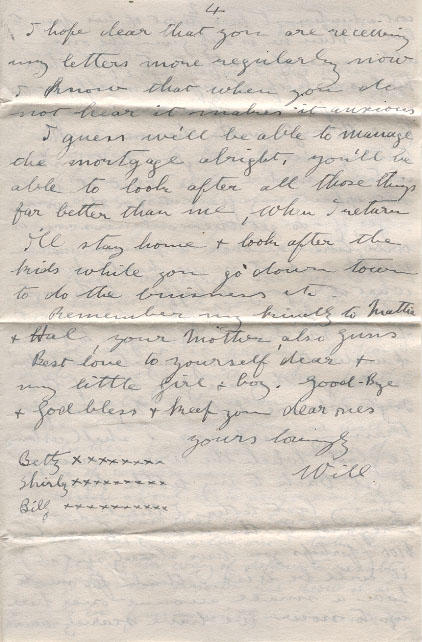 4
I hope dear that you are receiving
my letters more regularly now
I know that when you do
not hear it makes it anxious
I guess we'll be able to manage
the mortgage alright, you'll be
able to look after all those things
far better than me, When I return
I'll stay home + look after the
kids while you go down town
to do the business
Remember my kindly to Mattie
+ Hal, your Mother, also
Best love to yourself dear +
my little girl + boy. Good-Bye
+ God bless + keep you dear ones
yours lovingly
Will.
Betty xxxxxxxxx
Shirly xxxxxxxxx
Billy xxxxxxxxxx